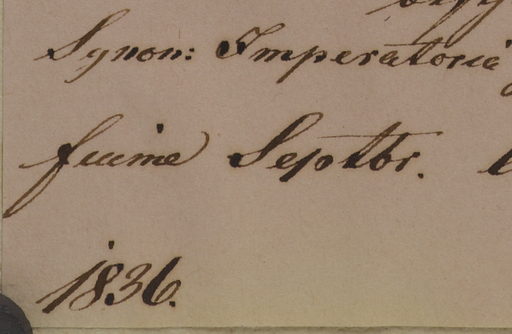 Synon: Imperatoria
Fiume Septbr.
1836.